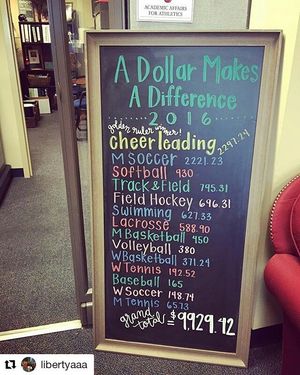 ACADEMIC AFFAIRS
FOR ATHLETICS
A Dollar Makes
A Difference
2016
golden ruler winner!
cheerleading 2297.24
M SOCCER 2221.23
Softball 930
Track & Field 795.31
Field Hockey 696.31
Swimming 627.33
Lacrosse 588.90
M Basketball 450
Volleyball 380
W Basketball 371.24
W Tennis 192.52
Baseball 165
W Soccer 148.74
M Tennis 65.73
grand total = $9,929.42
libertyaaa